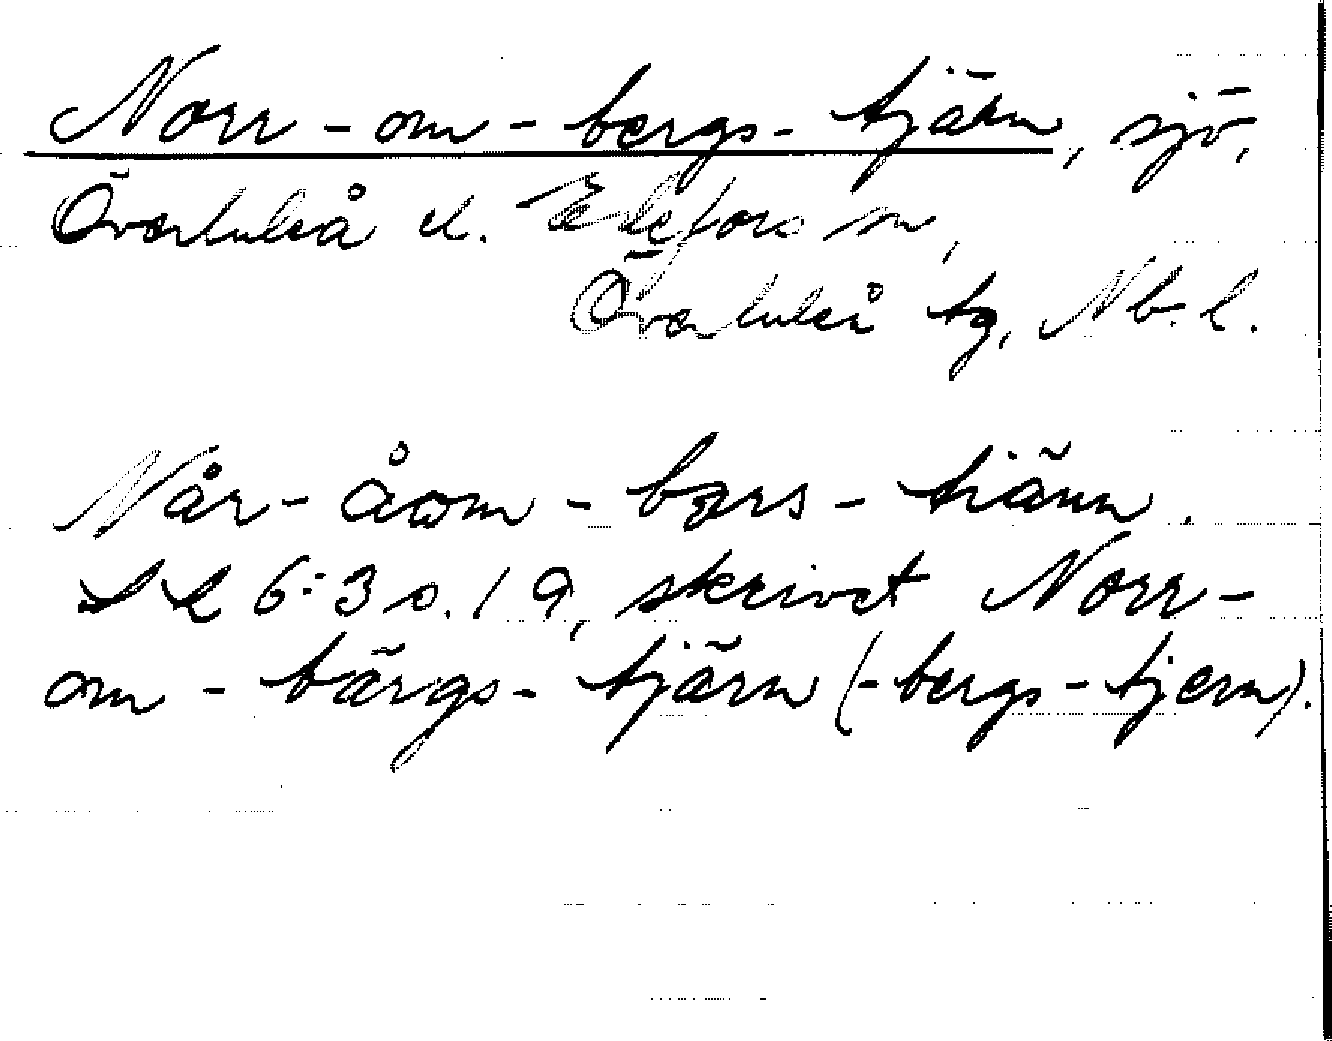 Norr-om-bergs-tjärn, sjö,
Överluleå el. Edefors sn,
Överluleå tg, Nb. l.
Når-åom-bars-tiänn.
LL 6:3 s. 19, skrivet Norr-
om-bärgs-tjärn (-bergs-tjern).